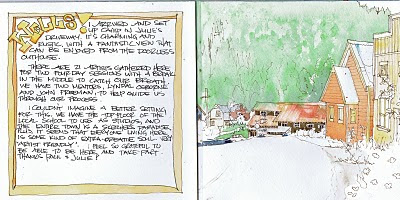 Wells!
I ARRIVED AND SET
UP CAMP IN JULIE'S
DRIVEWAY. IT'S CHARMING AND
RUSTIC, WITH A FANTASTIC VIEW THAT
CAN BE ENJOYED FROM THE DOORLESS
OUTHOUSE.
THERE ARE 21 ARTISTS GATHERED HERE
FOR TWO FOUR-DAY SESSIONS WITH A BREAK
IN THE MIDDLE TO CATCH OUR BREATH.
WE HAVE TWO MENTORS, LYNDAL OSBORNE
AND JOHN FREEMAN, TO HELP GUIDE US
THROUGH OUR PROCESS.
I COULDN'T IMAGINE A BETTER SETTING
FOR THIS. WE HAVE THE TOP FLOOR OF THE
LOCAL SCHOOL TO USE AS STUDIOS, AND
THE ENTIRE TOWN IS A SKETCHERS PARADISE.
PLUS IT SEEMS THAT EVERYONE WHO LIVES HERE
IS SOME KIND OF EXTRA-CREATIVE SOUL. VERY
"ARTIST FRIENDLY". I FEEL SO GRATEFUL TO
BE ABLE TO BE HERE, AND TAKE PART.
THANKS, & JULIE!